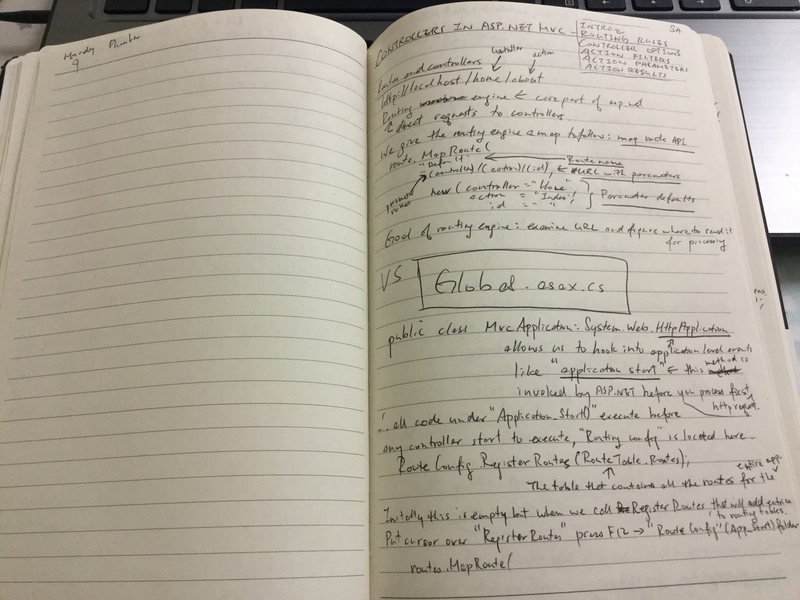 Handy Plumber
9
CONTROLLERS IN ASP.NET MVC -
SA
INTRO
ROUTING RULES
CONTROLLER OPTIONS
ACTION FILTERS
ACTION PARAMETERS
ACTION RESULTS
controller action
and controllers
http://localhost/home/about
Routing engine ← core part of asp.net
direct requests to controllers
We give the routing engine a map to follow: map route API
route.MapRoute(
"Default" Route name
(controller)/(action)/(id), ← URL with parameters
new (controller = "Home" Parameter defaults
action = "Index"
id = " "
Goal of routing engine: examine URL and figure where to send it
for processing
VS Global.asax.cs
public class MvcApplication: System.Web.HttpApplication
allows us to hook into application level events
like "application start" ← this method is
invoked by ASP.NET before you process first
http request.
∴ all code under "Application_Start()" execute before
any controller start to execute, "Routing config" is located here.
RouteConfig.RegisterRoutes(RouteTable.Routes);
The table that contains all the routes for the entire app.
Initially this is empty but when we call RegisterRoutes this will add entries
to routing tables.
Put cursor over "RegisterRoutes" press F12 → "RouteConfig" (App_Start) folder
routes.MapRoute(